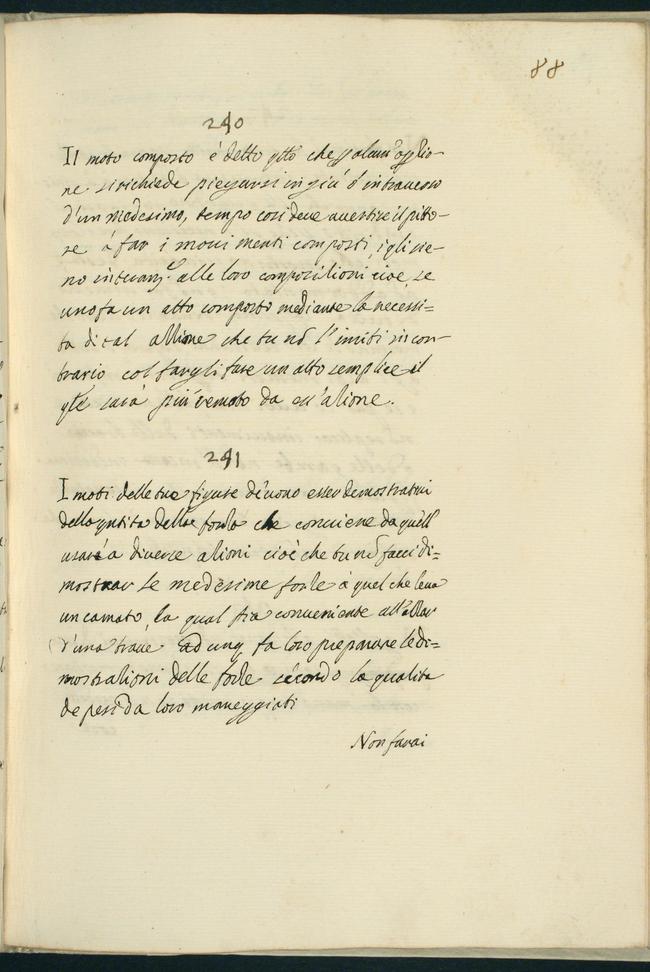 88
240
Il moto composto é detto qllo che p alcun'opplio-
ne si richiede piegarsi in giú ó in traverso
d'un medesimo, tempo cosi deve avertire il pitto-
re á far i movimenti composti, i qli sie-
no alle loro compositioni cioe, se
uno fa un atto composto mediante la necessi-
ta di tal attione che tu nō l'imiti in con-
trario col fargli fare un atto semplice il
qle sará piú remoto da ess'atione.
241
I moti delle tue figure devono esser demostrativi
della qntita della forza che conviene da quelli
usarsi a diverse ationi cioè che tu nō facci di=
mostrar le medesime forze á quel che leva
un camato, la qual fia conveniente all'alzar
d'una trave adunq fa loro preparare le di=
mostrationi delle forze secondo la qualita
de pesi da loro maneggiati
Non farai